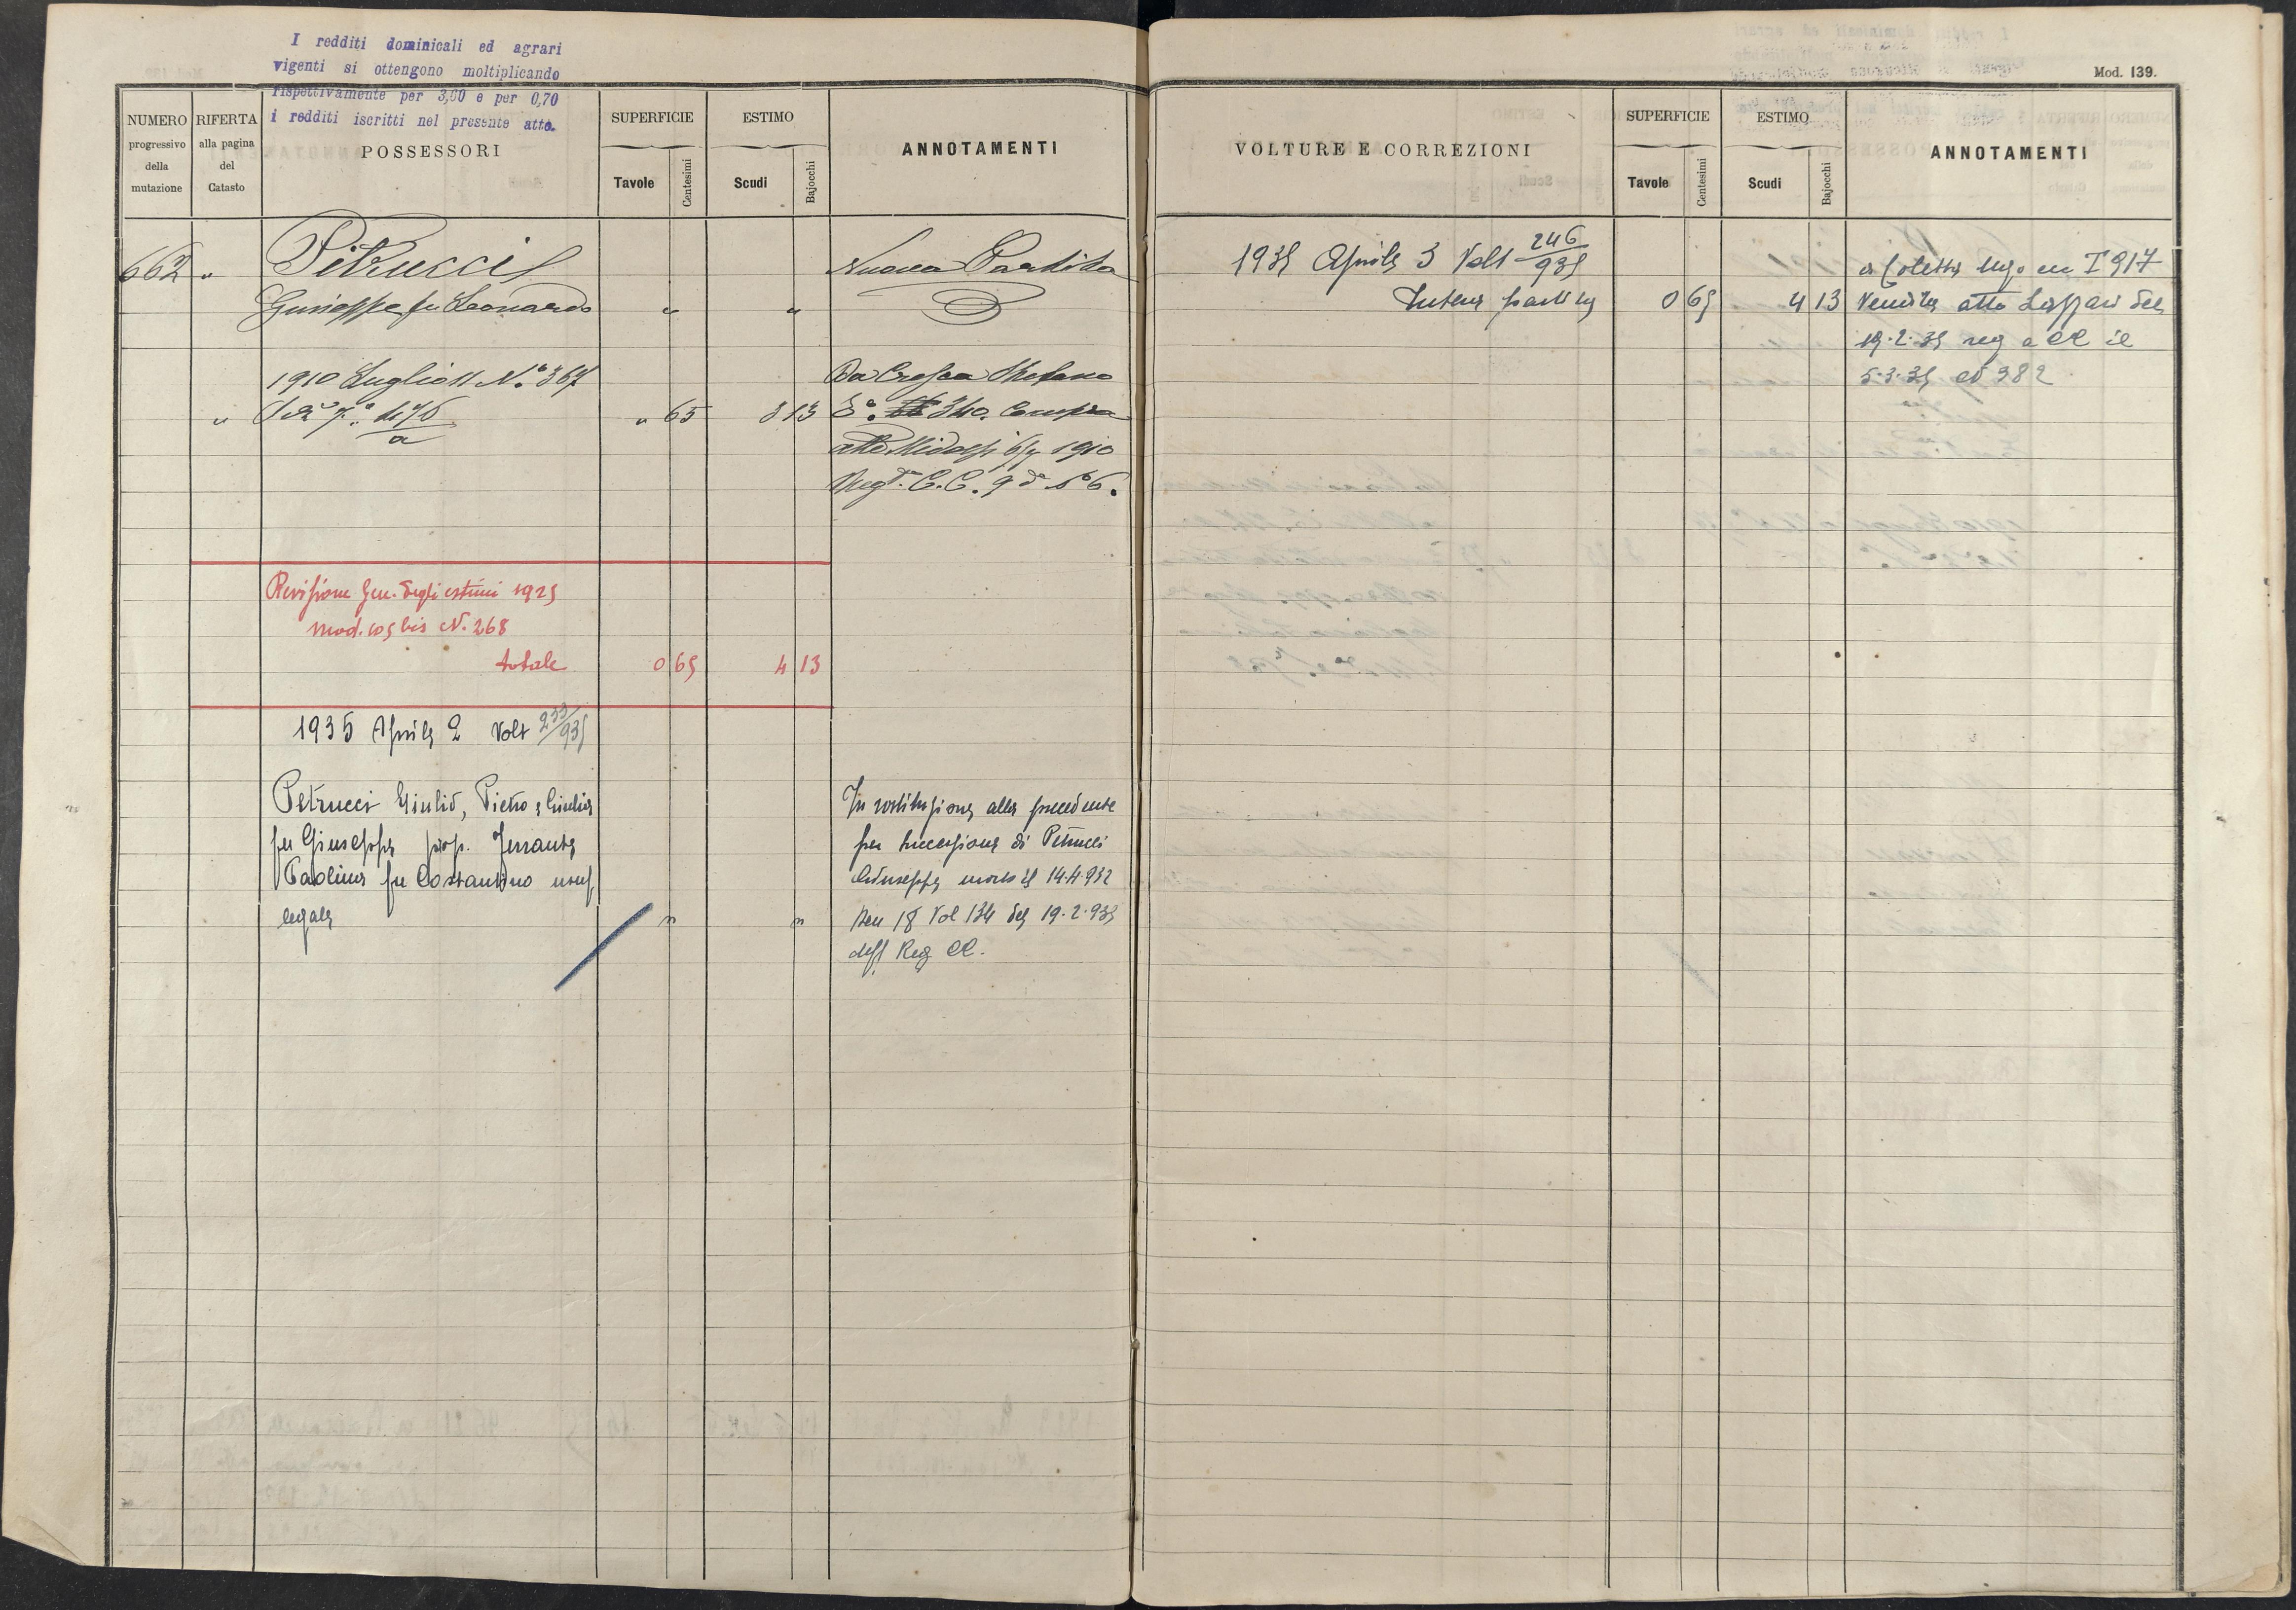 I redditi dominicali ed agrari
vigenti si ottengono moltiplicando
rispettivamente per 3,60 e per 0,70
i redditi iscritti nel presente atto.
NUMERO
progressivo
della
mutazione
RIFERTA
alla pagina
del
Catasto
POSSESSORI
SUPERFICIE
Tavole
Centesimi
ESTIMO
Scudi
Bajocchi
ANNOTAMENTI
662 " Petrucci Nuova Partita
Giuseppe fu Leonardo " "
1910 Luglio 11 N.° 367 Da Crespa Stefano
" 476/a " 65 3 13 340. Compra
atto 1910
Reg. C.C. 9 d.°
Revisione Gen. degli estimi 1925
mod. bis N. 268
totale 0 65 4 13
1935 Aprile 2 Volt 233/935
Petrucci Giulio, Pietro e Giulia In sostituzione alla precedente
fu Giuseppe prop. Ferrante per successione di Petrucci
Paolina fu Costantino usuf. Giuseppe morto il 14.4.932
legale " " Den 18 Vol 134 del 19.2.935
Reg CC.
Mod. 139.
VOLTURE E CORREZIONI
SUPERFICIE
Tavole
Centesimi
ESTIMO
Scudi
Bajocchi
ANNOTAMENTI
1935 Aprile 3 Volt 246/935 a Coletta Ugo en I 917
Intera partita 0 65 4 13 Vendita atto del
19.2.35 reg a CC il
5.3.35 al 982